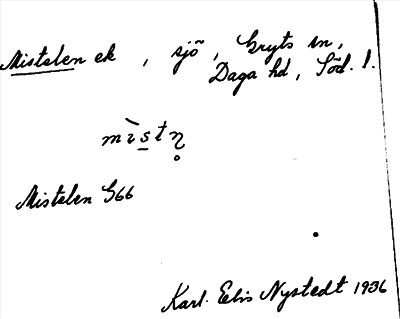 Mistelen ek, sjö, Gryts sn,
Daga hd, Söd. l.
mìstn̥
Mistelen G66
Karl. Eelis Nystedt 1936